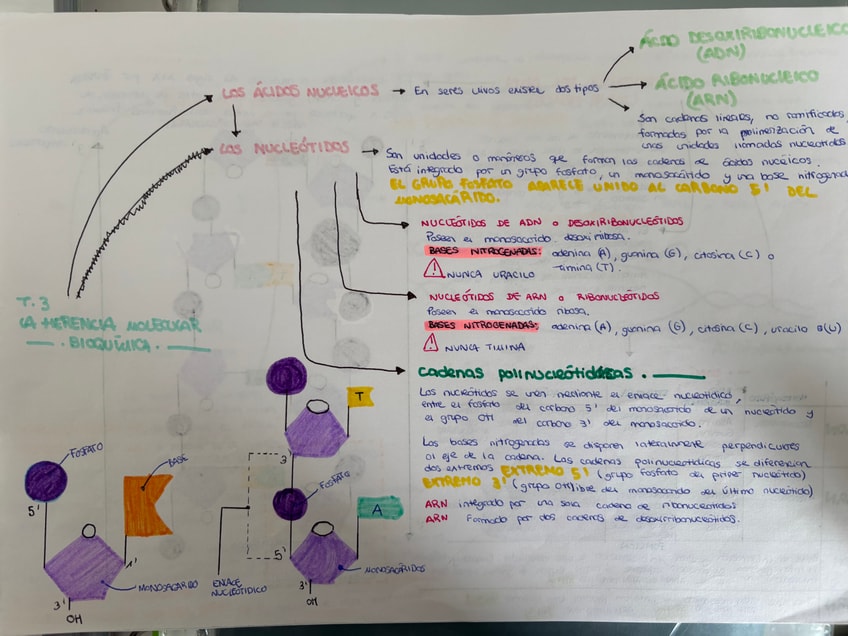 ÁCIDO DESOXIRIBONUCLEICO
(ADN)
LOS ÁCIDOS NUCLEICOS → En seres vivos existen dos tipos
ÁCIDO RIBONUCLEICO
(ARN)
Son cadenas lineales, no ramificadas,
formadas por la polimerización de
unas unidades llamadas nucleotidos
LOS NUCLEÓTIDOS
Son unidades o monómeros que forman las cadenas de ácidos nucleicos.
Está integrado por un grupo fosfato, un monosacárido y una base nitrogenada
EL GRUPO FOSFATO APARECE UNIDO AL CARBONO 5' DEL
MONOSACÁRIDO.
NUCLEÓTIDOS DE ADN o DESOXIRIBONUCLEÓTIDOS
Poseen el monosacárido desoxirribosa.
BASES NITROGENADAS: adenina (A), guanina (G), citosina (C) o
timina (T).
NUNCA URACILO
NUCLEÓTIDOS DE ARN o RIBONUCLEÓTIDOS
Poseen el monosacárido ribosa.
BASES NITROGENADAS: adenina (A), guanina (G), citosina (C), uracilo (U)
NUNCA TIMINA
T. 3
LA HERENCIA MOLECULAR
BIOQUÍMICA
cadenas polinucleótidas.
Los nucleótidos se unen mediante el enlace nucleotídico,
entre el fosfato del carbono 5' del monosacárido de un nucleótido y
el grupo OH del carbono 3' del monosacárido.
Las bases nitrogenadas se disponen lateralmente perpendiculares
al eje de la cadena. Las cadenas polinucleotídicas se diferencian
dos extremos EXTREMO 5' (grupo fosfato del primer nucleótido)
EXTREMO 3' (grupo OH libre del monosacárido del último nucleótido)
ARN integrado por una sola cadena de ribonucleótidos
ARN formado por dos cadenas de desoxirribonucleótidos.
FOSFATO
5'
BASE
1'
MONOSACÁRIDO
3'
OH
T
3'
FOSFATO
A
5'
MONOSACÁRIDOS
ENLACE
NUCLEOTÍDICO
3'
OH